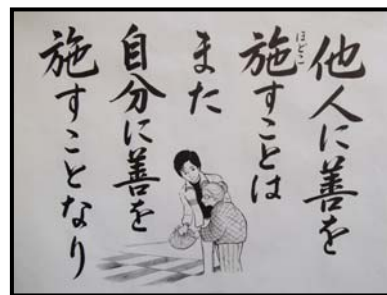 他人に善を
施すことは
ほどこ
また
自分に善を
施すことなり